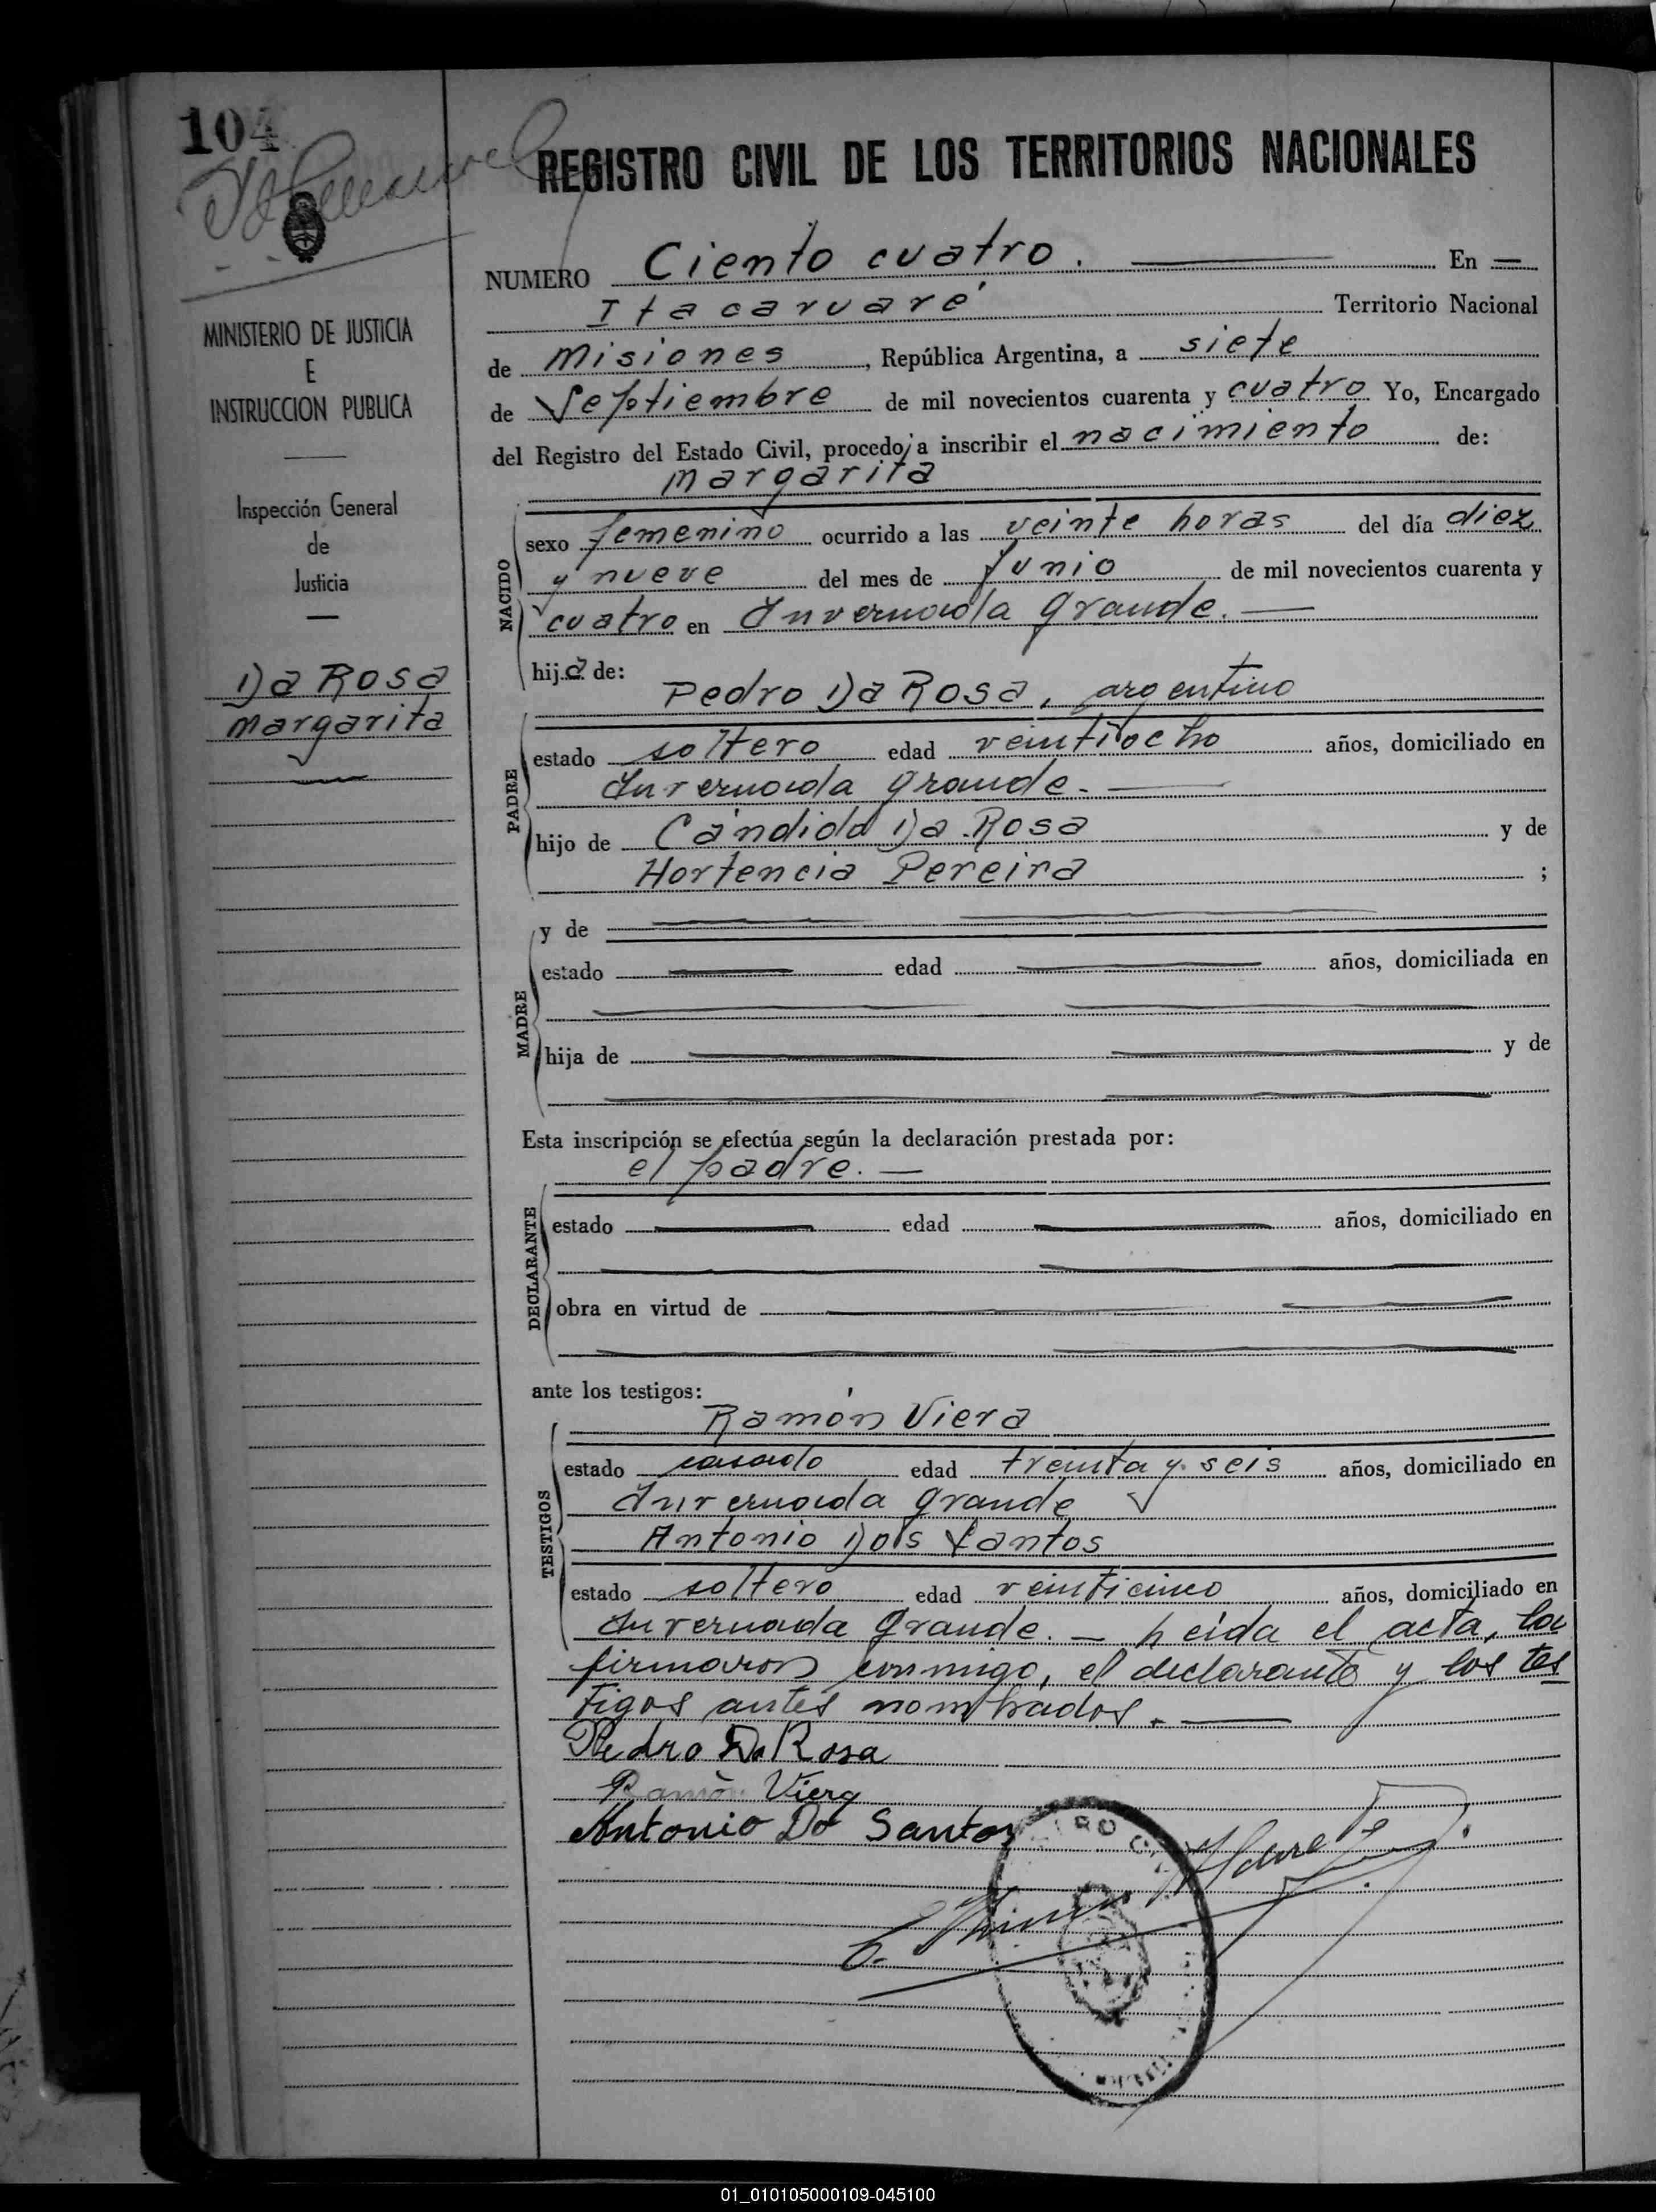 104
REGISTRO CIVIL DE LOS TERRITORIOS NACIONALES
NUMERO Ciento cuatro. En
Itacaruaré Territorio Nacional
de Misiones, República Argentina, a siete
de Septiembre de mil novecientos cuarenta y cuatro Yo, Encargado
del Registro del Estado Civil, procedo a inscribir el nacimiento de:
Margarita
MINISTERIO DE JUSTICIA
E
INSTRUCCION PUBLICA
Inspección General
de
Justicia
Da Rosa
Margarita
NACIDO
sexo femenino ocurrido a las veinte horas del día diez
y nueve del mes de Junio de mil novecientos cuarenta y
cuatro en Invernada Grande.
hija de:
Pedro Da Rosa, argentino
PADRE
estado soltero edad veintiocho años, domiciliado en
Invernada Grande.
hijo de Cándido Da Rosa y de
Hortencia Pereira ;
MADRE
y de
estado edad años, domiciliada en
hija de y de
Esta inscripción se efectúa según la declaración prestada por:
el padre.
DECLARANTE
estado edad años, domiciliado en
obra en virtud de
ante los testigos:
Ramón Viera
TESTIGOS
estado casado edad treinta y seis años, domiciliado en
Invernada Grande
Antonio Dos Santos
estado soltero edad veinticinco años, domiciliado en
Invernada Grande. — Leída el acta, la
firmaron conmigo, el declarante y los tes
tigos antes nombrados.
Pedro Da Rosa
Ramón Viera
Antonio Do Santos
01_010105000109-045100